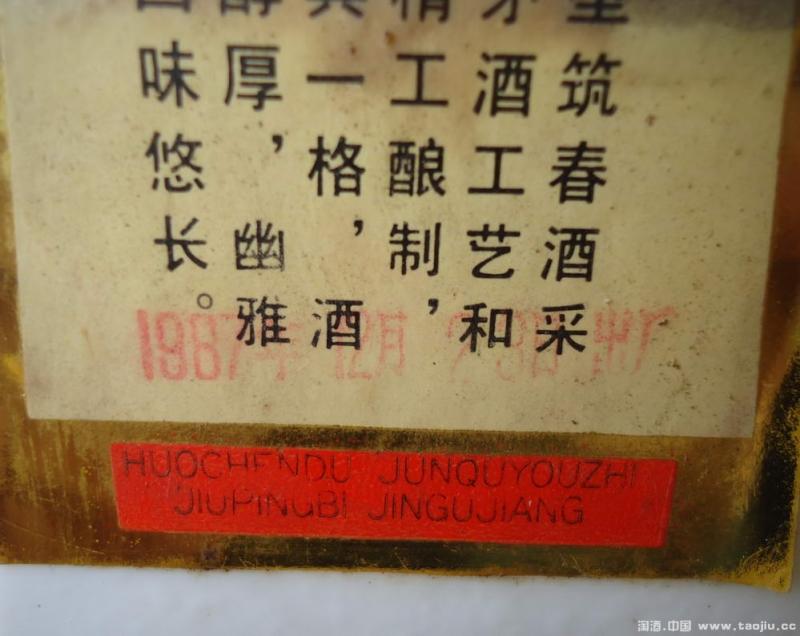 筑春酒采
茅酒工艺和
精工酿制,
具一格,酒
醇厚,幽雅
回味悠长。
1987年 12月 出厂
HUOCHENDU JUNQUYOUZHI
JIUPINGBI JINGUJIANG
淘酒.中国 www.taojiu.cc